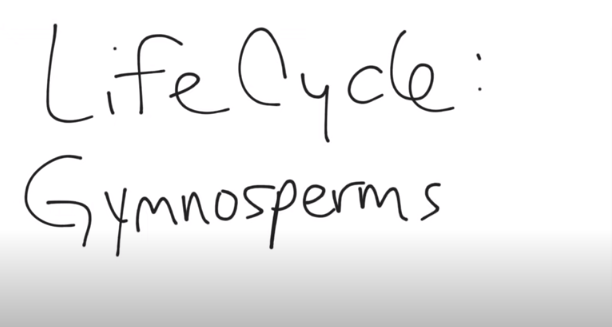 Life Cycle:
Gymnosperms